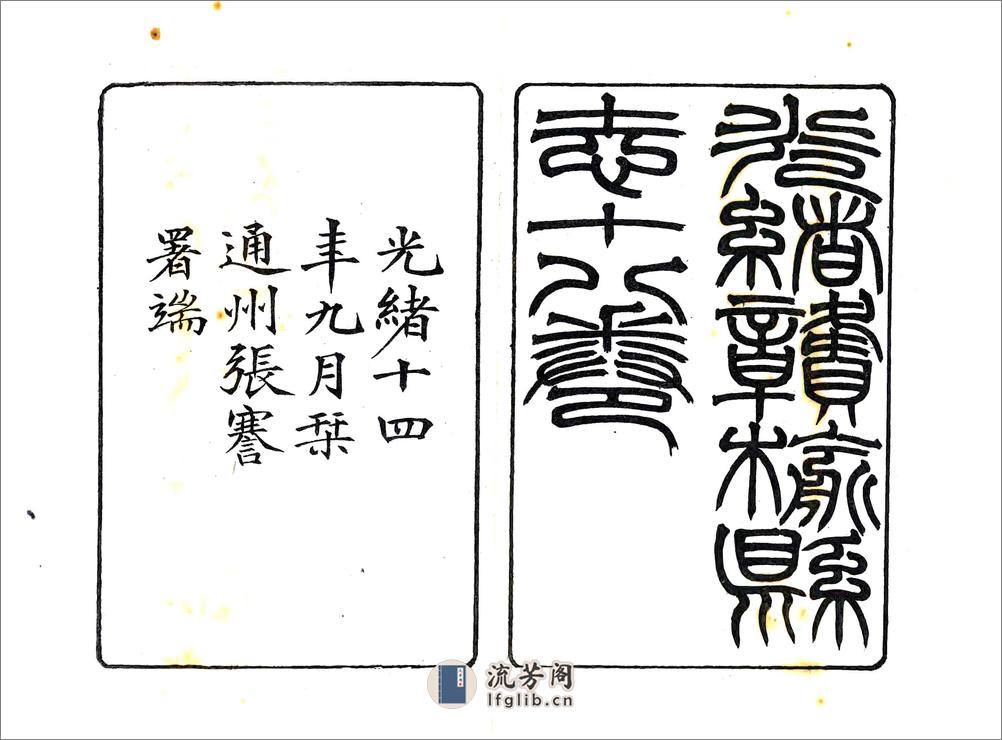 光緒贛榆縣
志十八卷
光緒十四
年九月栞
通州張謇
署端
流芳阁
lfglib.cn